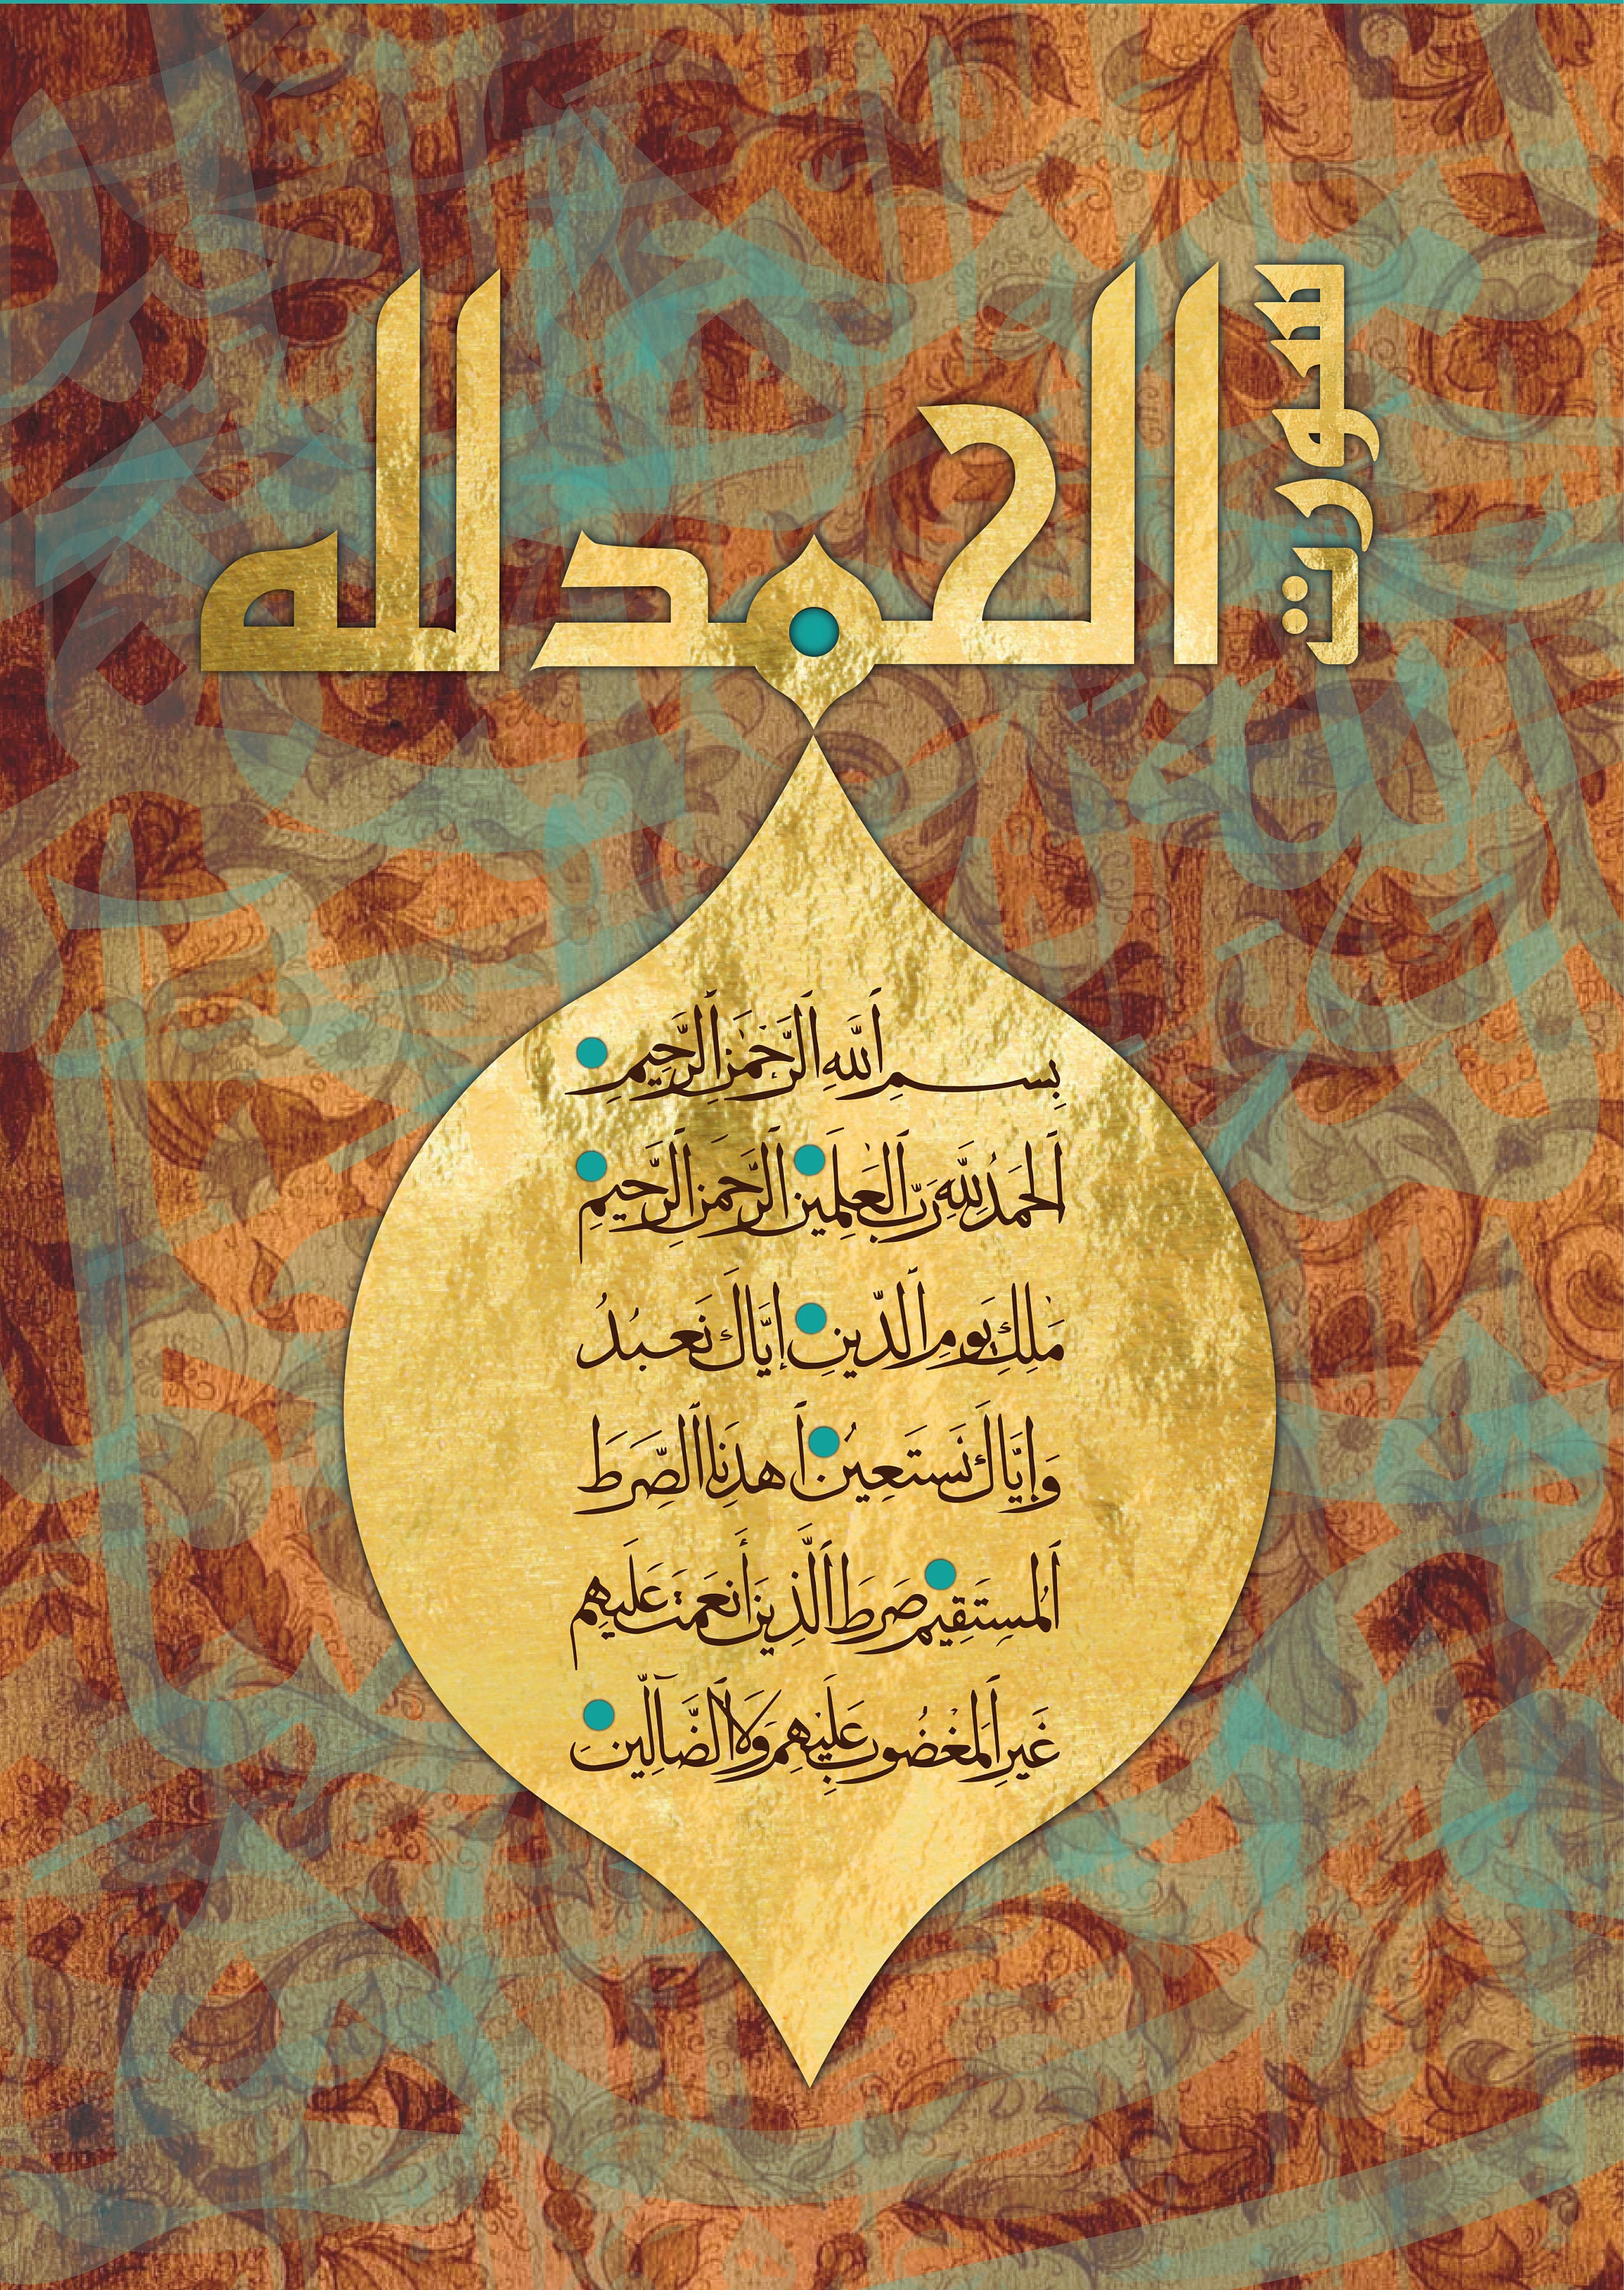 سورت
الحمد لله
بِسمِ ٱللَّهِ ٱلرَّحمَٰنِ ٱلرَّحِيمِ
ٱلحَمدُ لِلَّهِ رَبِّ ٱلعَٰلَمِين ٱلرَّحمَنِ ٱلرَّحِيمِ
مَٰلِكِ يَومِ ٱلدِّينِ إِيَّاكَ نَعبُدُ
وَإِيَّاكَ نَستَعِينُ ٱهدِنَا ٱلصِّرَطَ
ٱلمُستَقِيم صِرَطَ ٱلَّذِينَ أَنعَمتَ عَلَيهِم
غَيرِ ٱلمَغضُوبِ عَلَيهِم وَلَا ٱلضَّآلِّينَ